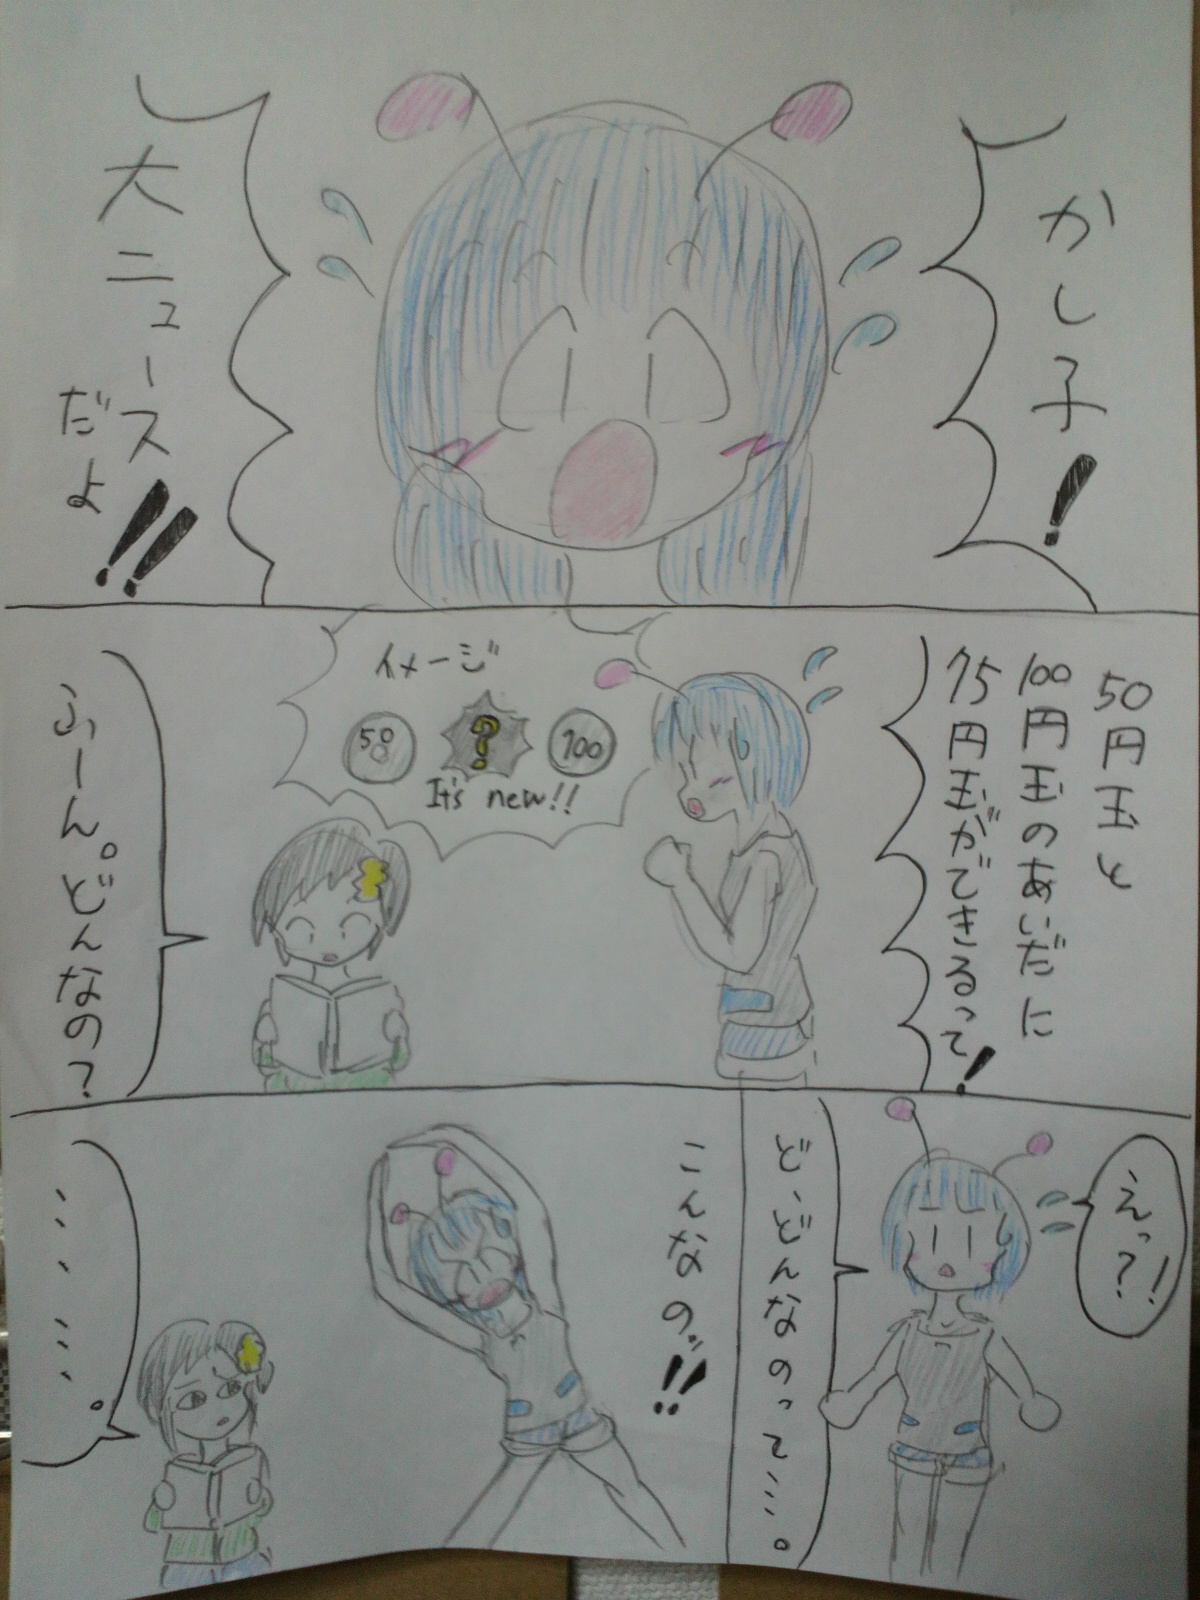 かし子!
大ニュース
だよ!!
50円玉と
100円玉のあいだに
75円玉ができるって!
イメージ
50
?
100
It's new!!
ふーん。どんなの?
えっ?!
ど、どんなのって……。
こんなのッ!!
……。